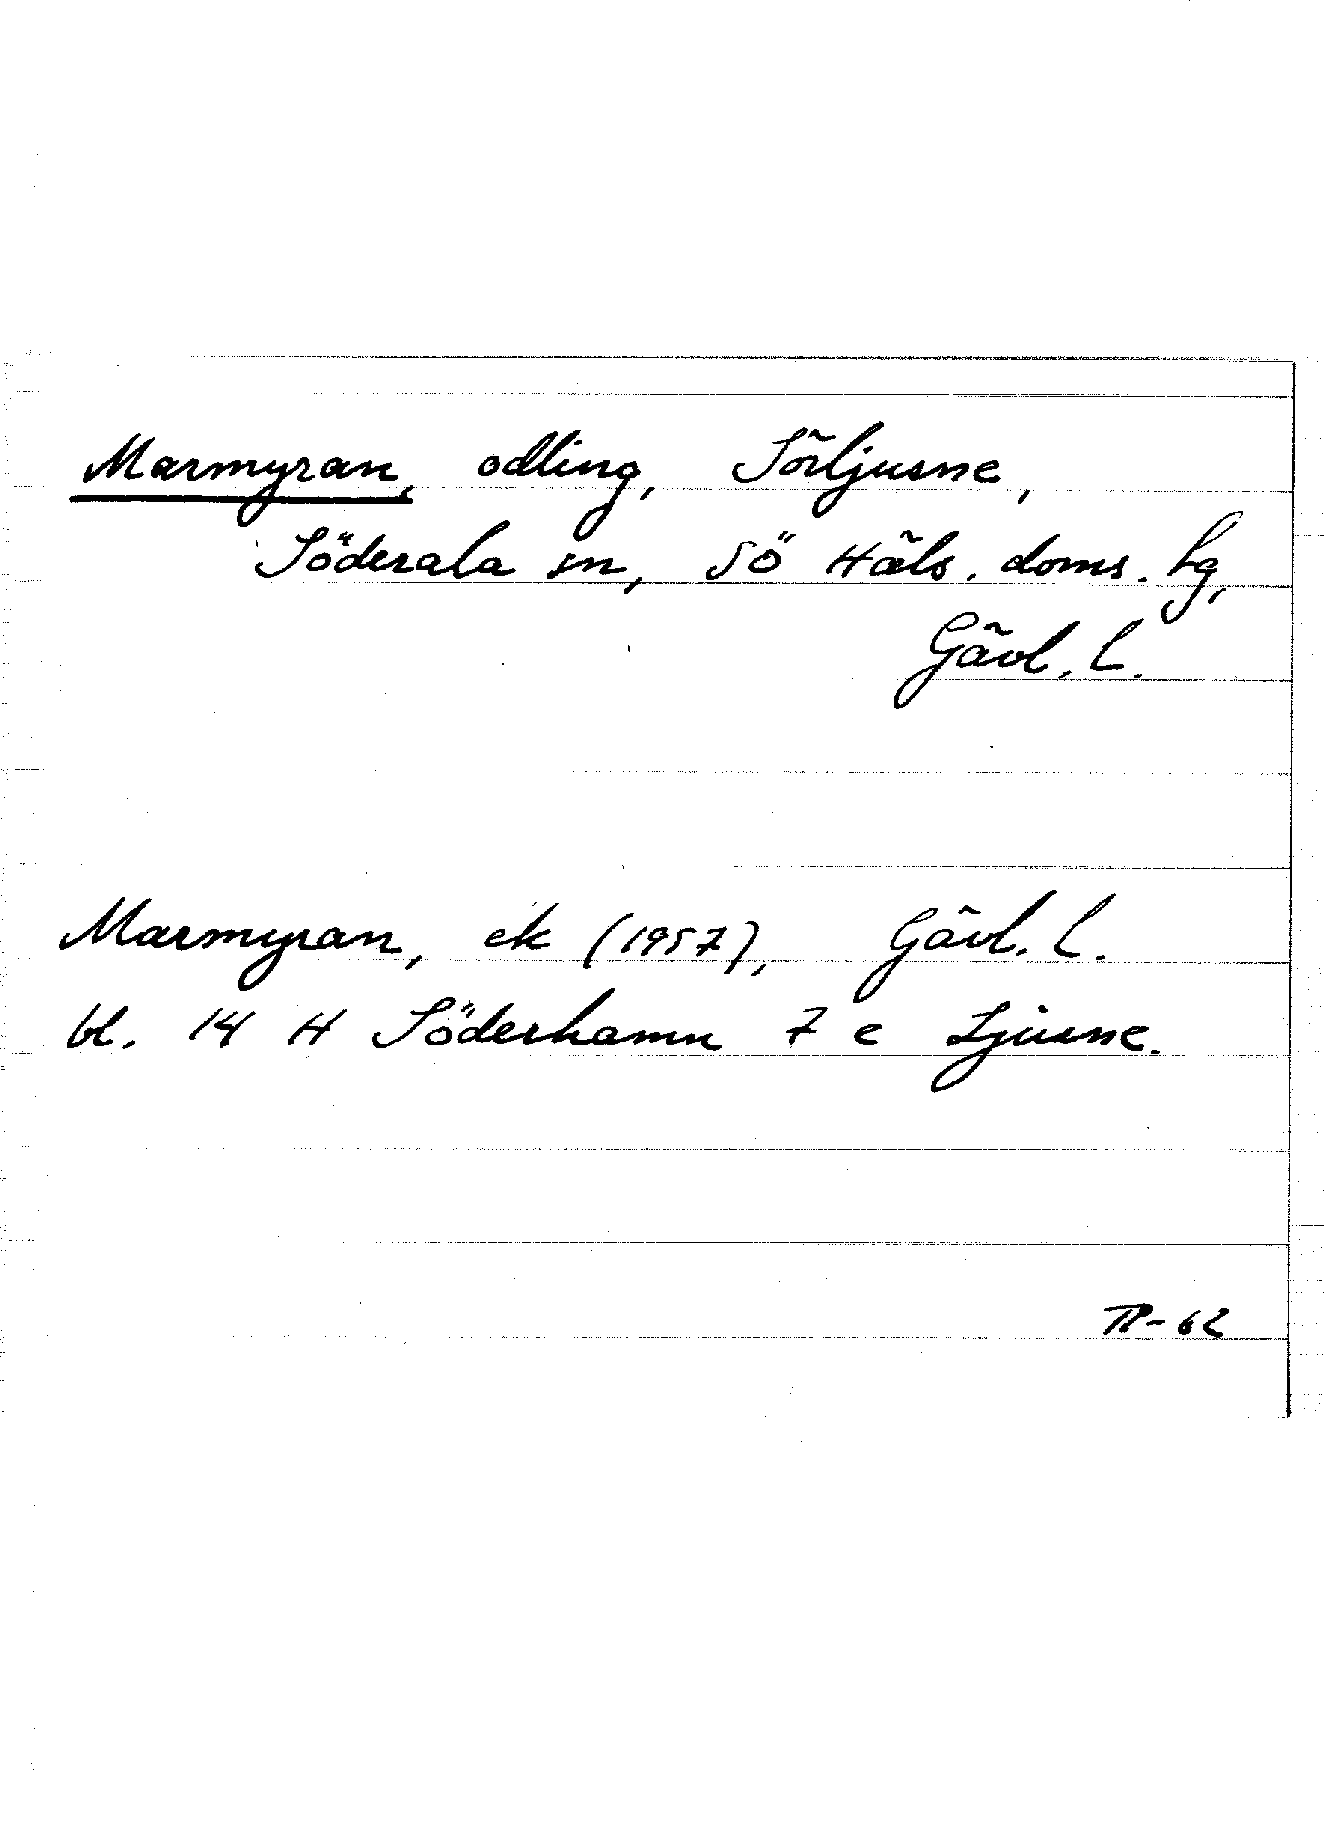 Marmyran, odling, Sörljusne,
Söderala sn, SÖ Häls. doms. hg,
Gävl. l.
Marmyran, ek (1957), Gävl. l.
bl. 14 H Söderhamn 7 e Ljusne.
-62